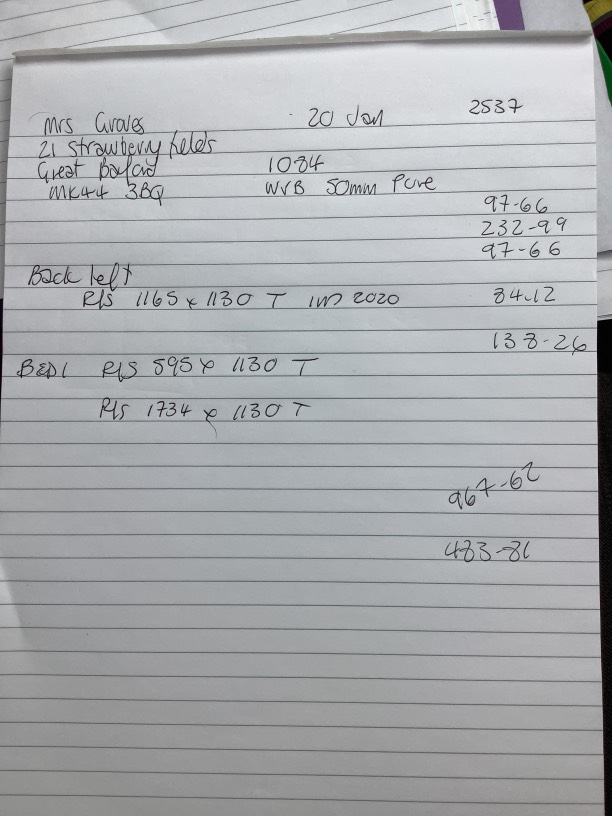 Mrs Graves 20 Jan 2537
21 Strawberry fields
Great Barford 1084
MK44 3BQ WVB 50mm Pure
97-66
232-99
97-66
Back left
R/S 1165 x 1130 T 2020 84.12
138-26
BED1 R/S 595 x 1130 T
R/S 1734 x 1130 T
967-62
483-81